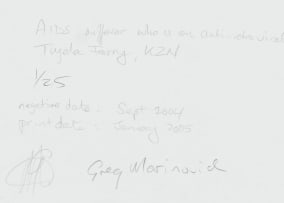 AIDS sufferer who is on anti-retroviral
Tugela Ferry, KZN
1/25
negative date : Sept 2004
print date : January 2005
Greg Marinovich